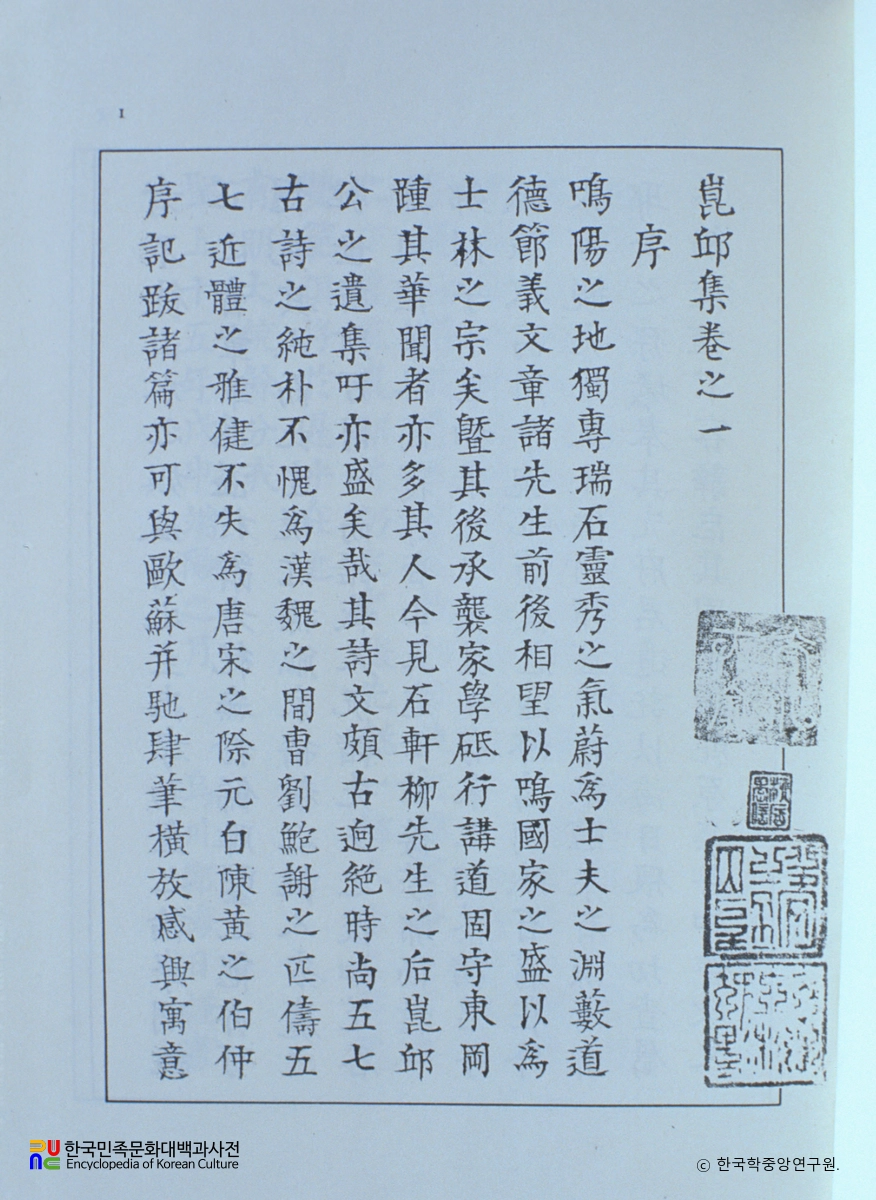 崑邱集卷之一
序
鳴陽之地獨專瑞石靈秀之氣蔚爲士夫之淵藪道
德節義文章諸先生前後相望以鳴國家之盛以爲
士林之宗矣曁其後承襲家學砥行講道固守東岡
踵其華聞者亦多其人今見石軒柳先生之后崑邱
公之遺集吁亦盛矣哉其詩文頗古逈絶時尙五七
古詩之純朴不愧爲漢魏之間曺劉鮑謝之匹儔五
七近體之雅健不失爲唐宋之際元白陳黃之伯仲
序記跋諸篇亦可與歐蘇并馳肆筆橫放感興寓意
1
한국민족문화대백과사전
Encyclopedia of Korean Culture
© 한국학중앙연구원.